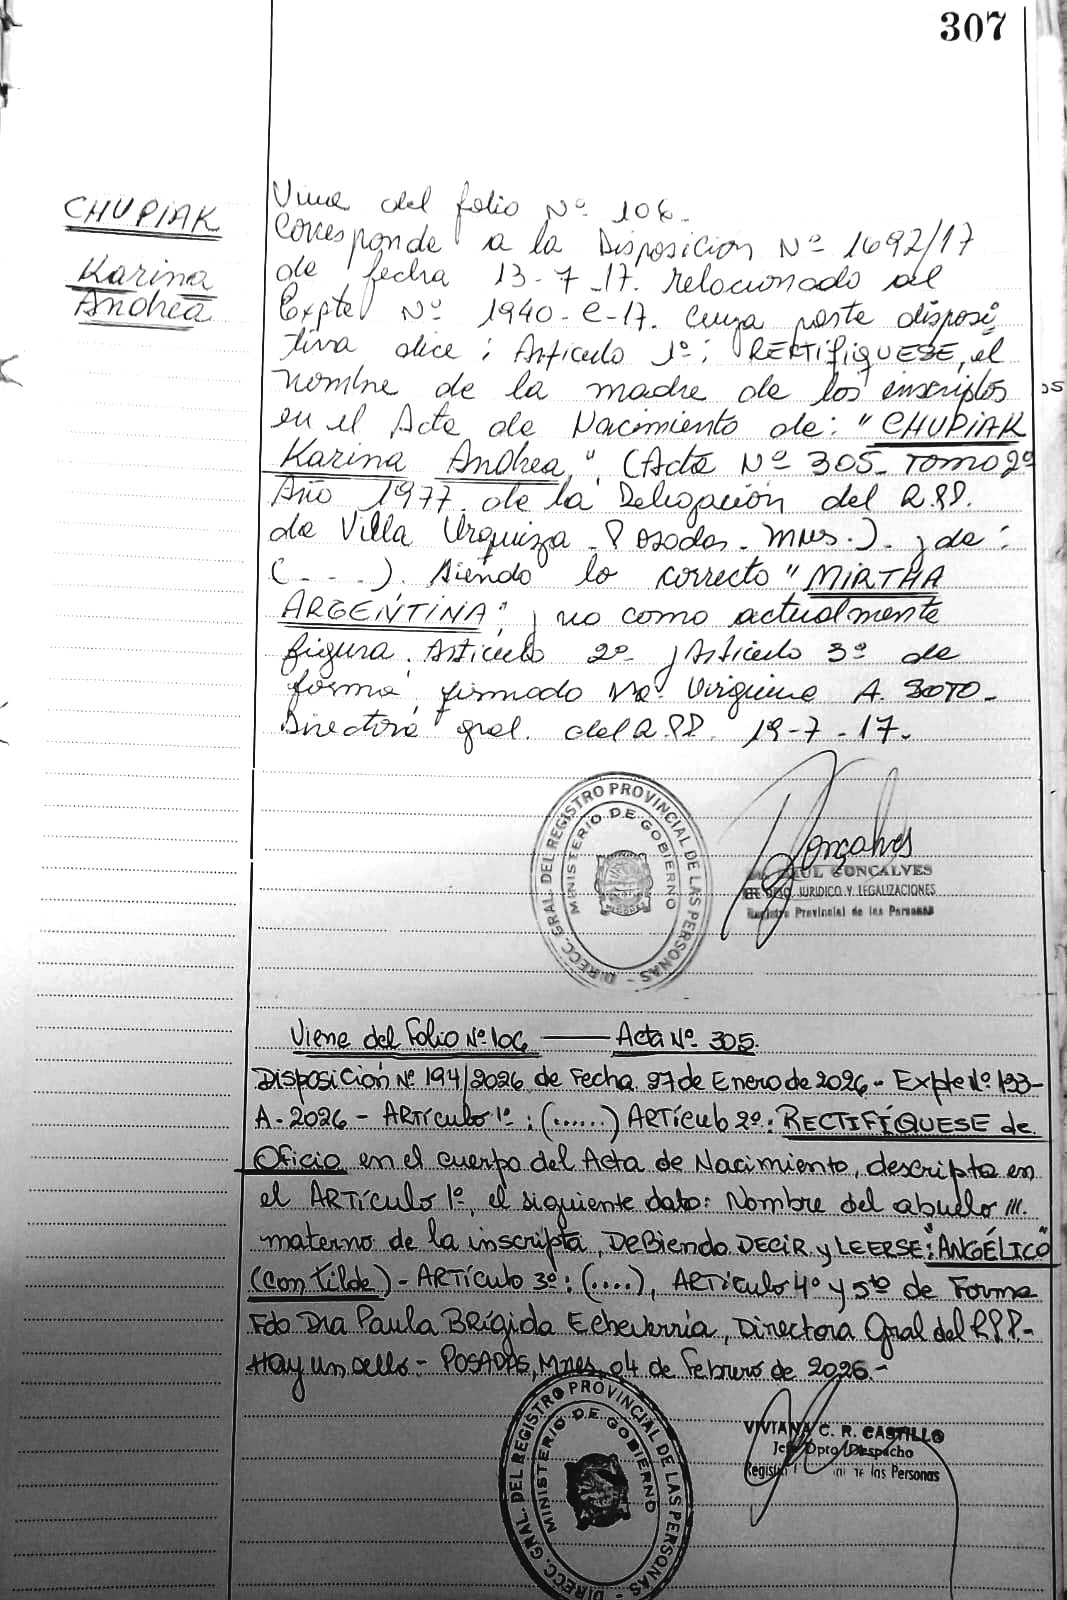 307
CHUPIAK
Karina
Andrea
Viene del folio Nº 106.
Corresponde a la Disposicion Nº 1692/17
de fecha 13-7-17. relacionado al
Expte Nº 1940-C-17. cuya parte disposi
tiva dice: Articulo 1º: RECTIFIQUESE, el
nombre de la madre de los inscriptos
en el Acta de Nacimiento de: "CHUPIAK
Karina Andrea" (Acta Nº 305- Tomo 2º
Año 1977. de la Delegación del R.P.P.
de Villa Urquiza - Posadas - Mnes.). y de:
(- - -). Siendo lo correcto "MIRTHA
ARGENTINA", y no como actualmente
figura. Articulo 2º y Articulo 3º de
forma, firmado Virginia A. SOTO-
Directora gral. del R.P.P. 19-7-17.
DIRECC. GRAL. DEL REGISTRO PROVINCIAL DE LAS PERSONAS -
MINISTERIO DE GOBIERNO
Gonçalves
RAUL GONCALVES
JURIDICO Y LEGALIZACIONES
Registro Provincial de las Personas
Viene del Folio Nº 106 ——— Acta Nº 305.
Disposición Nº 194/2026 de Fecha 27 de Enero de 2026- Expte Nº 193-
A-2026- ARTÍculo 1º: (......) ARTÍculo 2º: RECTIFÍQUESE de
Oficio en el cuerpo del Acta de Nacimiento, descripta en
el ARTÍculo 1º, el siguiente dato: Nombre del abuelo
materno de la inscripta, DeBiendo DECIR y LEERSE: "ANGÉLICO"
(con tilde)- ARTÍculo 3º: (....), ARTÍculo 4º y 5to de Forma
Fdo Dra Paula BRÍgida Echeverría, Directora Gral del R.P.P.-
Hay un sello- POSADAS, Mnes, 04 de Febrero de 2026.-
DIRECC. GRAL. DEL REGISTRO PROVINCIAL DE LAS PERSONAS -
MINISTERIO DE GOBIERNO
VIVIANA C. R. CASTILLO
Jefe Dpto Despacho
las Personas